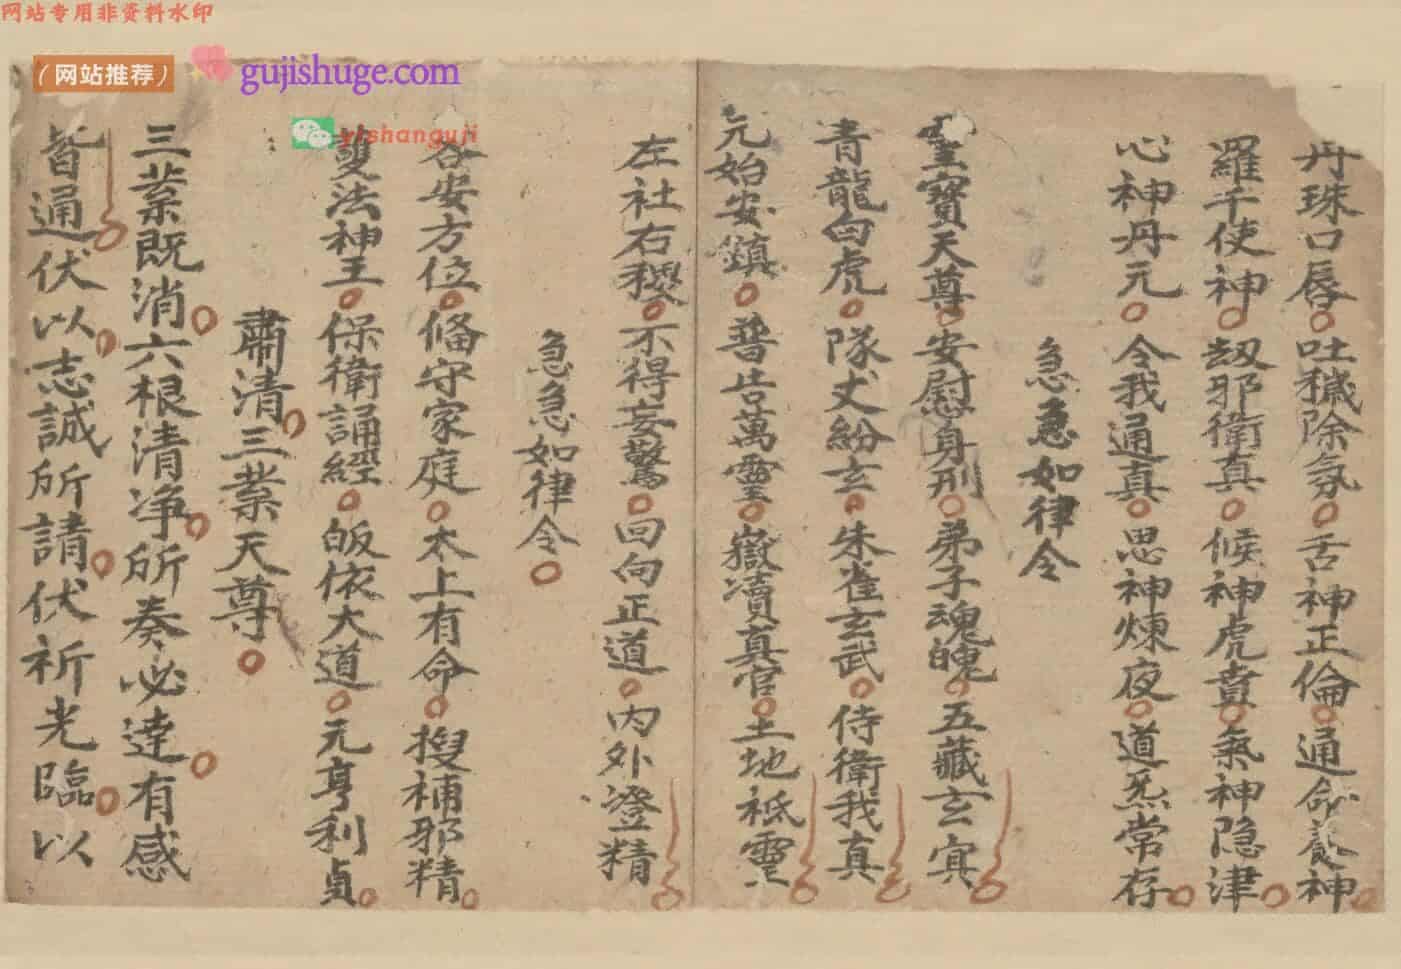 网站专用非资料水印
(网站推荐)
gujishuge.com
yishanguji
丹珠口唇吐穢除氛舌神正倫通命養神
羅千使神刼邪衛真候神虎賁氣神隐津
心神丹元令我通真思神煉夜道炁常存
急急如律令
寳天尊安慰身刑弟子魂魄五藏玄㝠
青龍白虎隊丈紛玄朱雀玄武侍衛我真
元始安鎮普告萬靈嶽瀆真官土地祇靈
左社右稷不得妄驚回向正道内外澄精
急急如律令
各安方位俻守家庭太上有命搜補邪精
䕶法神王保衛誦經皈依大道元亨利貞
肅清三業天尊
三業既消六根清净所奏必達有感
皆通伏以志誠所請伏祈光臨以